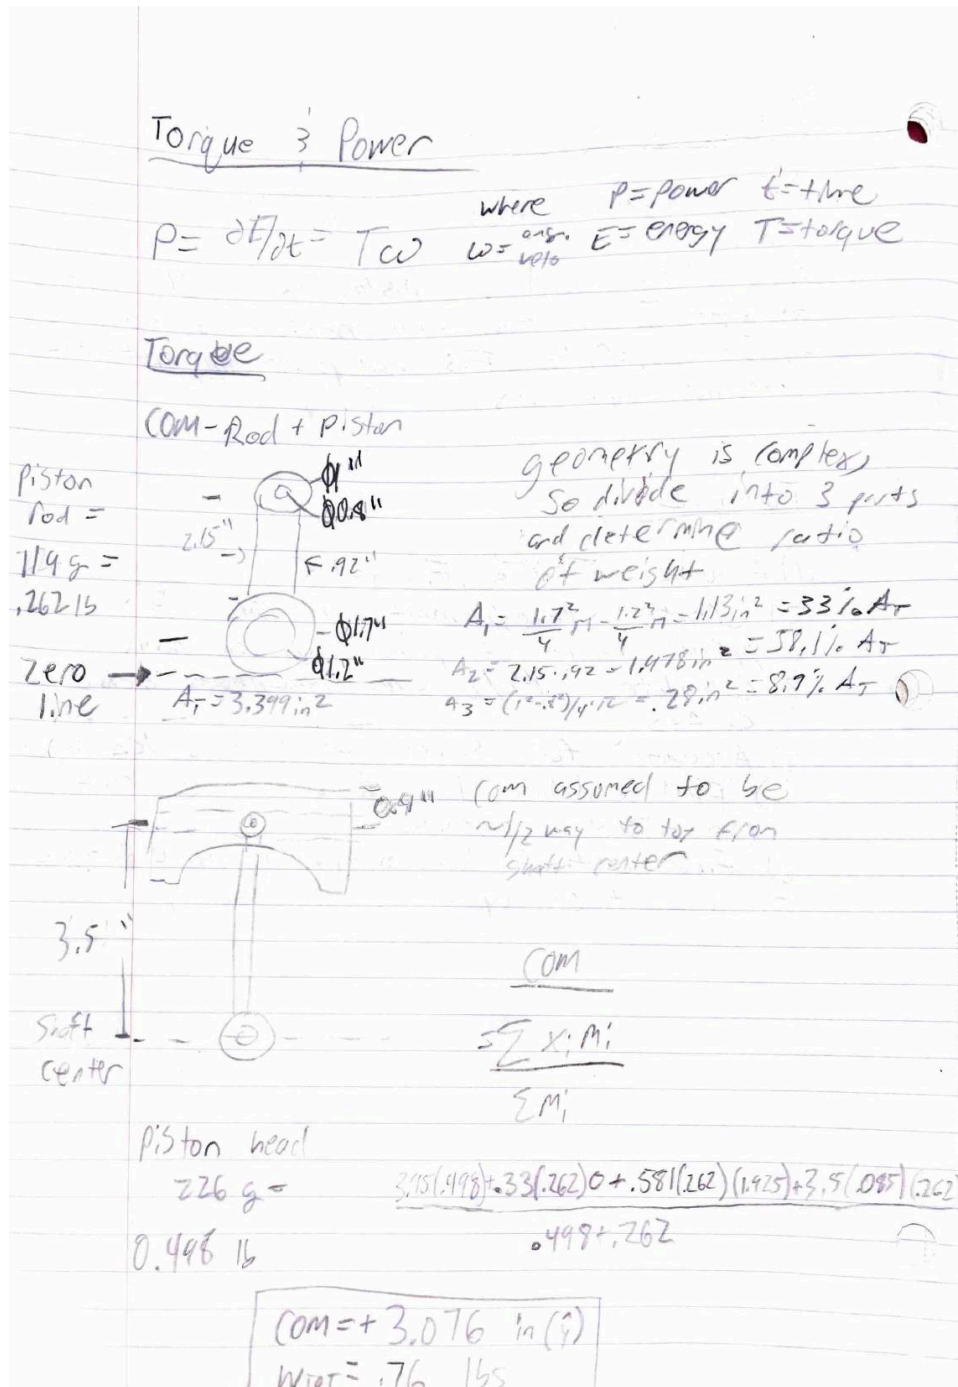 Torque & Power
where P=Power t=time
P= ∂E/∂t = Tω ω= ang. velo E=energy T=torque
Torque
COM-Rod + Piston
Piston rod = 119 g = .262 lb
ϕ1"
ϕ0.8"
2.15"
.92"
ϕ1.7"
ϕ1.2"
zero line
A_T=3.399in²
geometry is complex,
so divide into 3 parts
and determine ratio
of weight
A₁= 1.7²/4 π - 1.2²/4 π = 1.13in² = 33% A_T
A₂= 2.15·.92=1.978in² = 58.1% A_T
A₃ = (1²-.8²)/4·π = .28in² = 8.9% A_T
0.9"
Com assumed to be
~1/2 way to top from
shaft center
3.5"
Shaft center
COM
=Σ xᵢ mᵢ
Σ mᵢ
Piston head
226 g =
0.498 lb
3.95(.498)+.33(.262)0+.581(.262)(1.925)+3.5(.085)(.262
.498+.262
COM=+3.076 in (ŷ)
W_TOT= .76 lbs